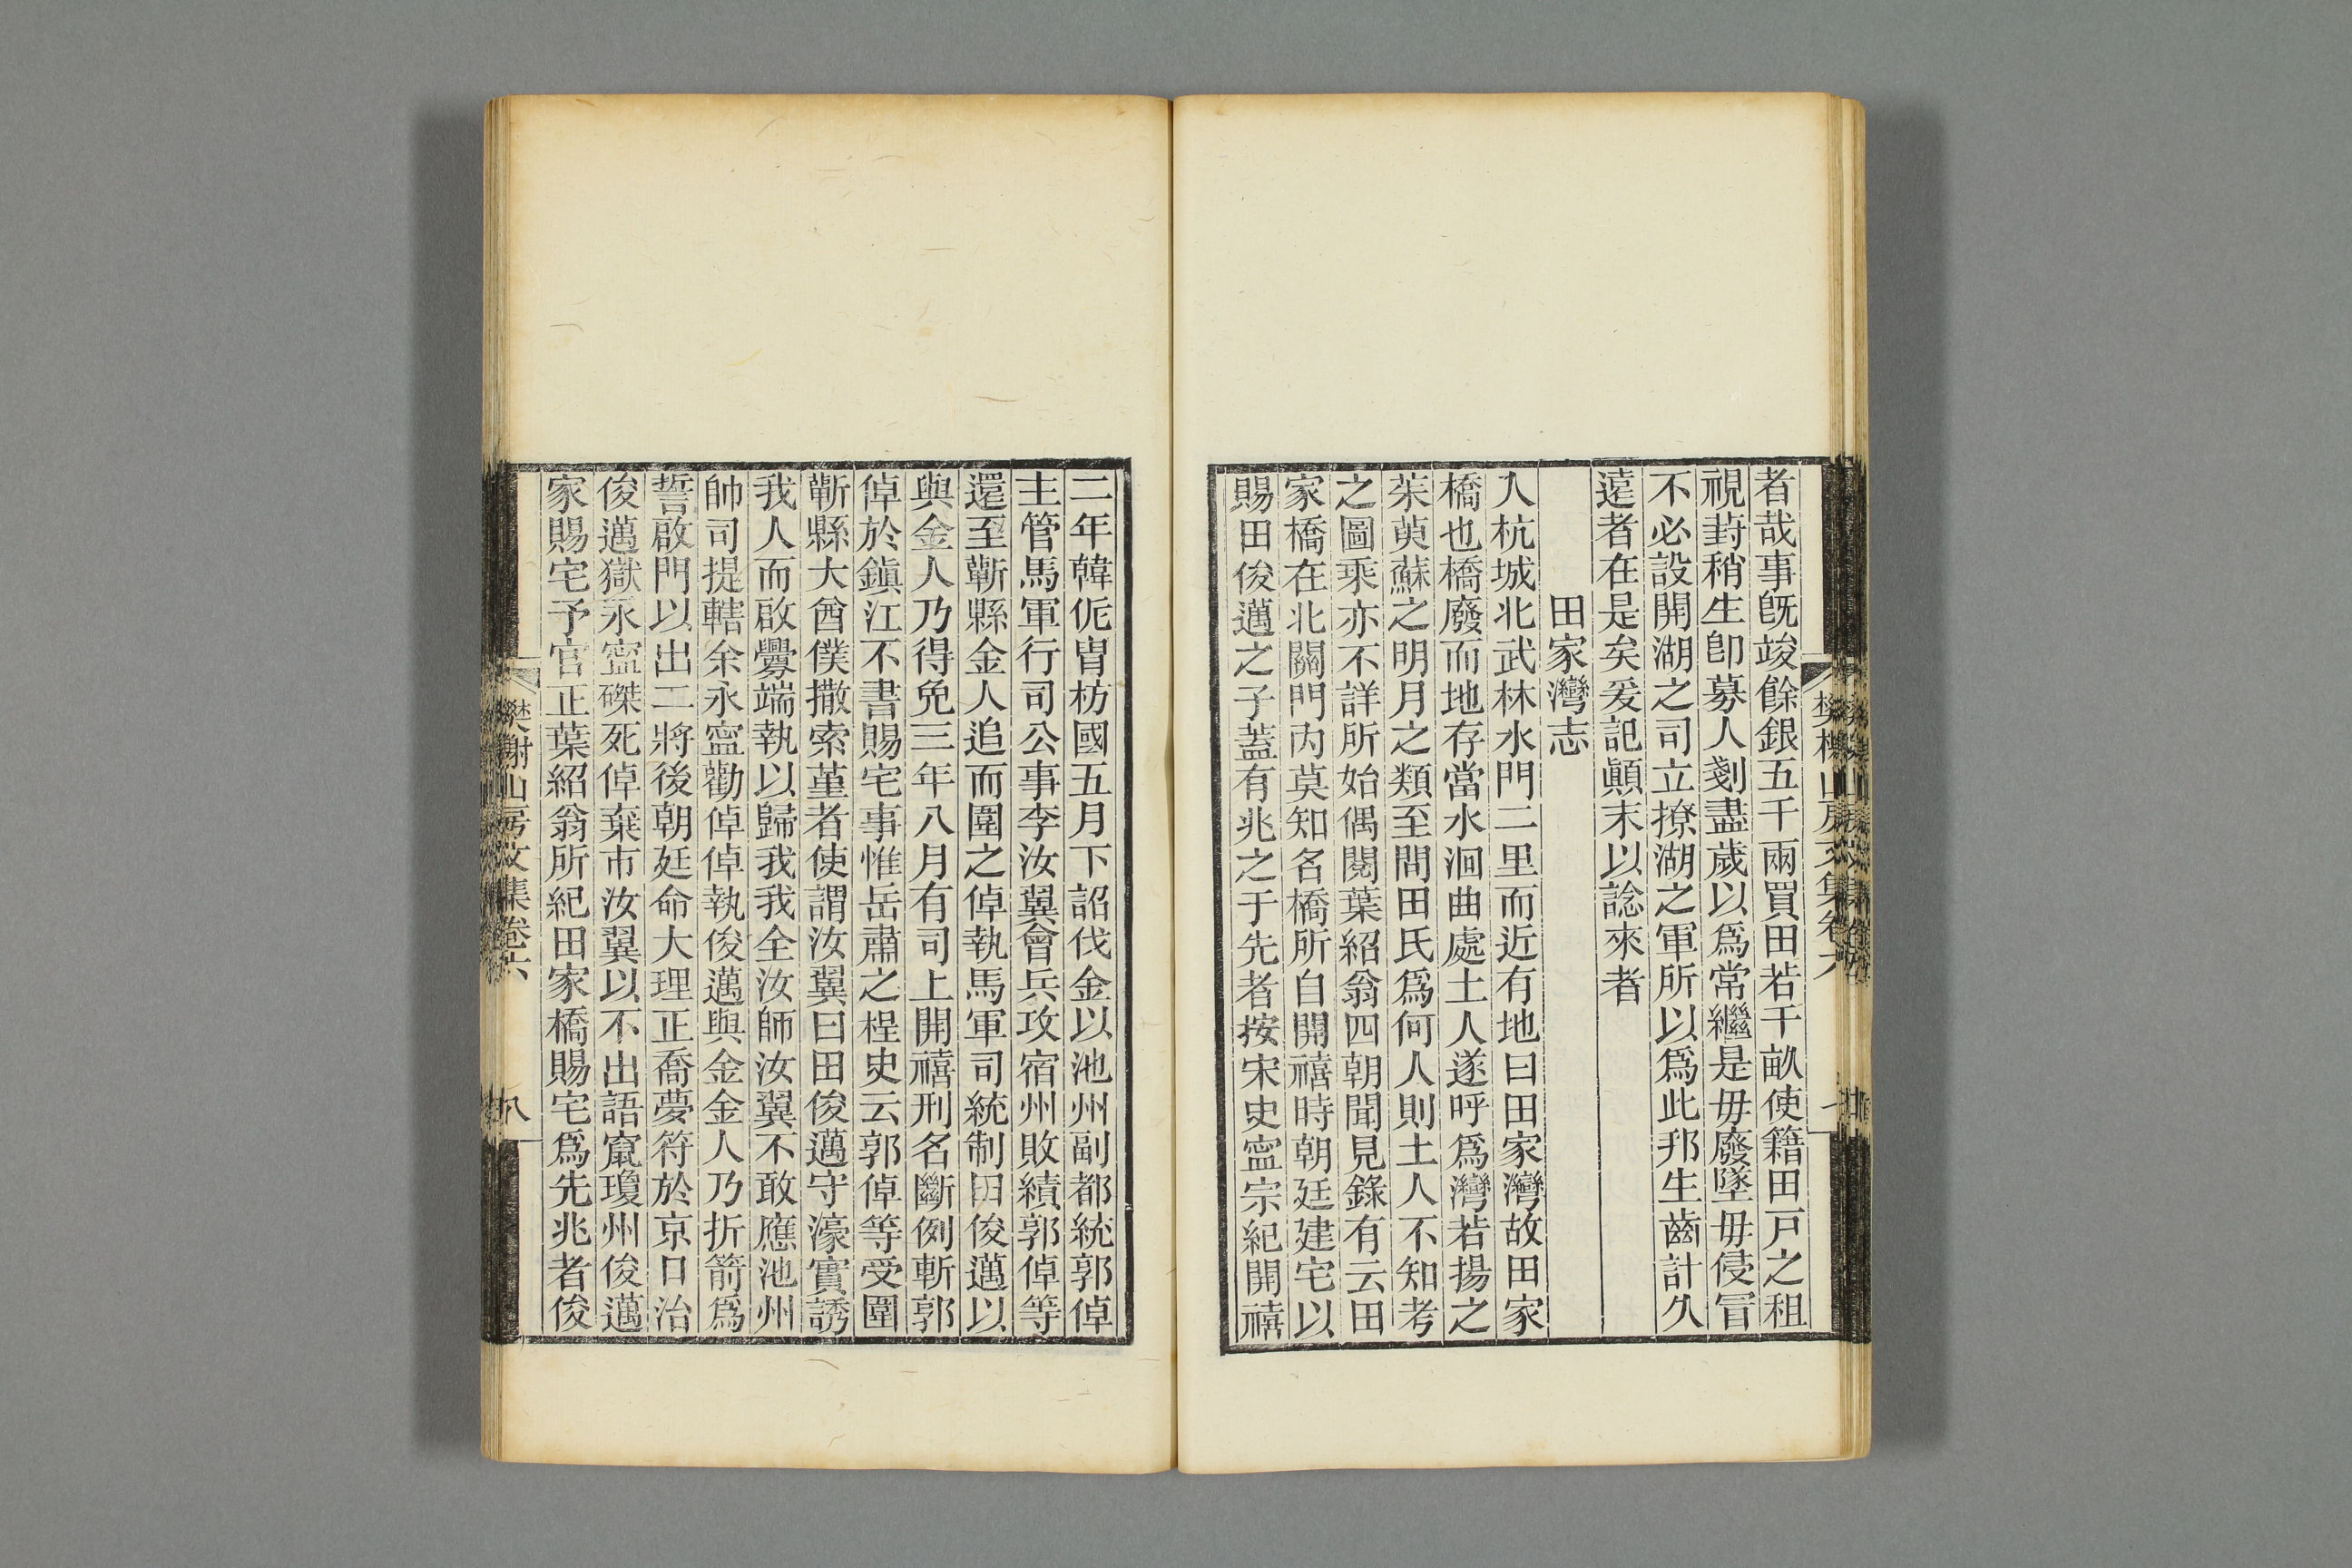 者哉事旣竣餘銀五千兩買田若干畝使籍田戸之租
視葑稍生卽募人剗盡歲以爲常繼是毋廢墜毋侵冒
不必設開湖之司立撩湖之軍所以爲此邦生齒計久
遠者在是矣爰記顚末以諗來者
田家灣志
入杭城北武林水門二里而近有地曰田家灣故田家
橋也橋廢而地存當水洄曲處土人遂呼爲灣若揚之
茱萸蘇之明月之類至問田氏爲何人則土人不知考
之圖乘亦不詳所始偶閱葉紹翁四朝聞見錄有云田
家橋在北關門內莫知名橋所自開禧時朝廷建宅以
賜田俊邁之子蓋有兆之于先者按宋史寧宗紀開禧
樊榭山房文集卷六
二年韓侂胄枋國五月下詔伐金以池州副都統郭倬
主管馬軍行司公事李汝翼會兵攻宿州敗績郭倬等
還至蘄縣金人追而圍之倬執馬軍司統制田俊邁以
與金人乃得免三年八月有司上開禧刑名斷例斬郭
倬於鎭江不書賜宅事惟岳肅之桯史云郭倬等受圍
蘄縣大酋僕撒索堇者使謂汝翼曰田俊邁守濠實誘
我人而啟釁端執以歸我我全汝師汝翼不敢應池州
帥司提轄余永寧勸倬倬執俊邁與金金人乃折箭爲
誓啟門以出二將後朝廷命大理正喬夢符於京口治
俊邁獄永寧磔死倬棄市汝翼以不出語竄瓊州俊邁
家賜宅予官正葉紹翁所紀田家橋賜宅爲先兆者俊
樊榭山房文集卷六
八